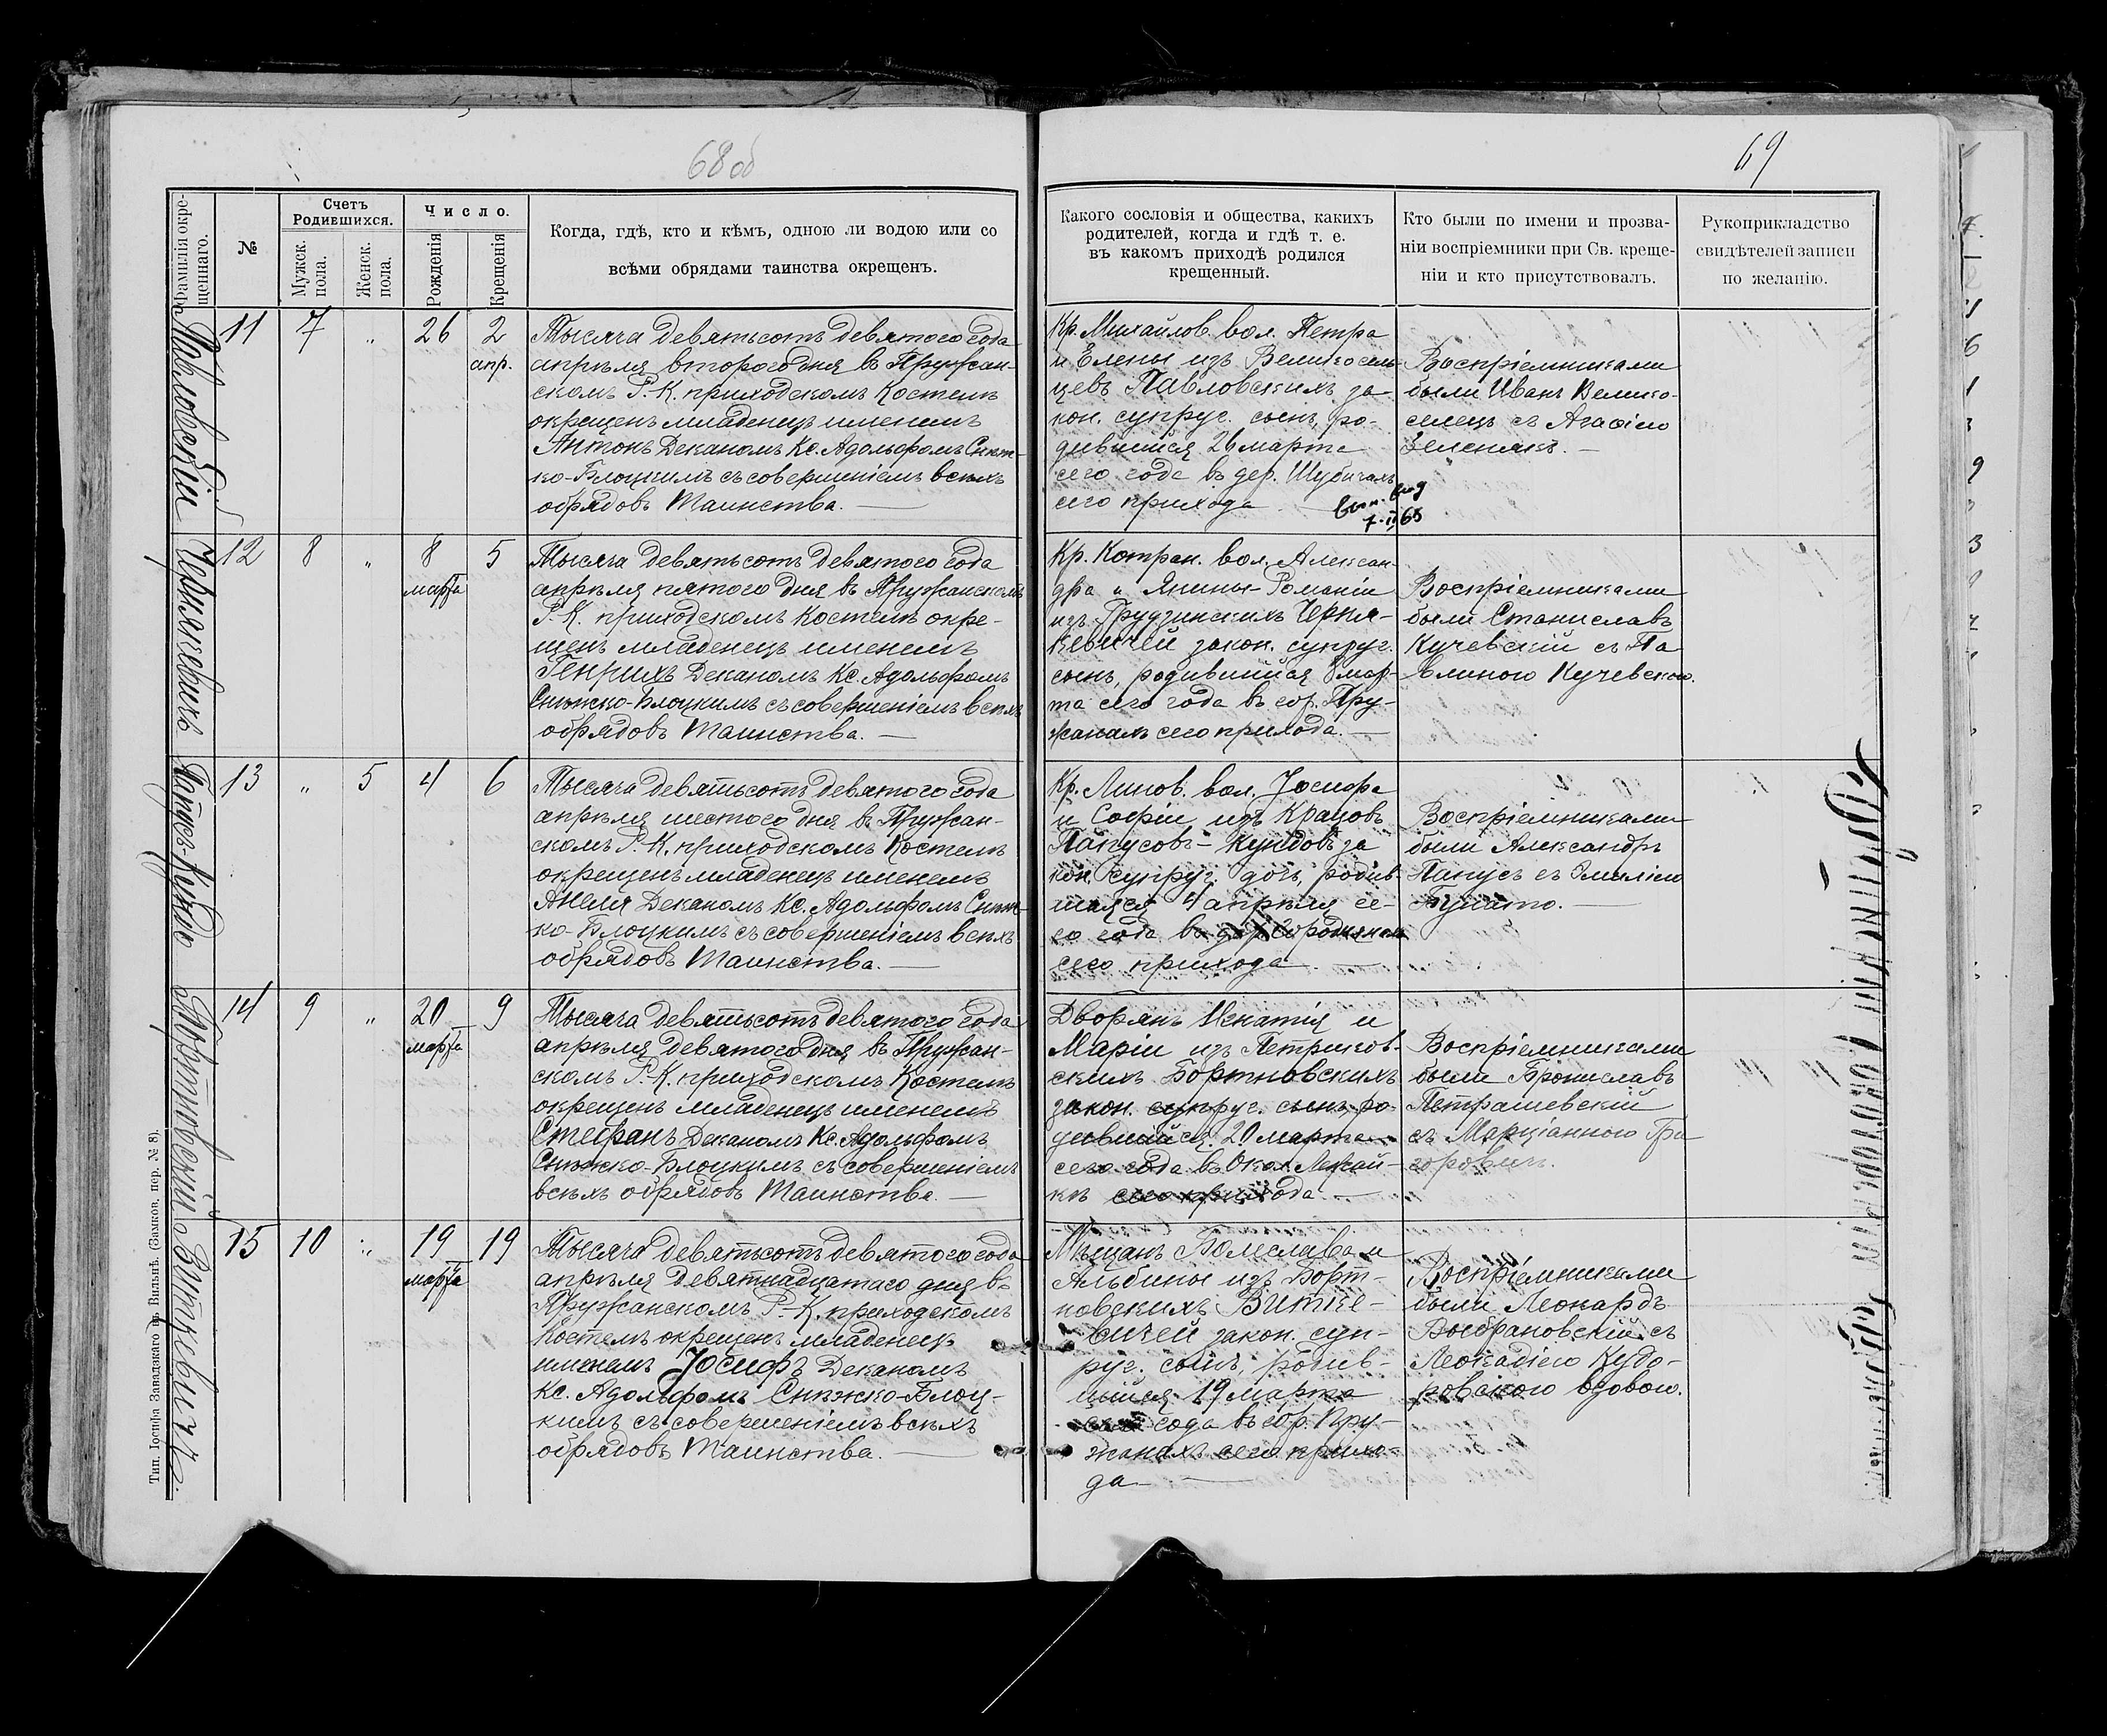 68 об
69
Фамилія окре-
щеннаго.
№
Счетъ
Родившихся.
Мужск.
пола.
Женск.
пола.
Число.
Рожденія
Крещенія
Когда, гдѣ, кто и кѣмъ, одною ли водою или со
всѣми обрядами таинства окрещенъ.
Какого сословія и общества, какихъ
родителей, когда и гдѣ т. е.
въ какомъ приходѣ родился
крещенный.
Кто были по имени и прозва-
ніи воспріемники при Св. креще-
ніи и кто присутствовалъ.
Рукоприкладство
свидѣтелей записи
по желанію.
Павловскій
11
7
„
26
2
апр.
Тысяча девятьсотъ девятого года
апрѣля второго дня въ Пружан-
скомъ Р.-К. приходскомъ Костелѣ
окрещенъ младенецъ именемъ
Антонъ Деканомъ Кс. Адольфомъ Снѣж-
ко-Блоцкимъ съ совершеніемъ всѣхъ
обрядовъ Таинства.
Кр. Михайлов. вол. Петра
и Елены изъ Великосель-
цевъ Павловскихъ за-
кон. супруг. сынъ, ро-
дившійся 26 марта
сего года въ дер. Шубичахъ
сего прихода
7-II 68
Воспріемниками
были Иванъ Велико-
селецъ съ Агафіею
Зеленякъ.
Чернякевичъ
12
8
„
8
марта
5
Тысяча девятьсотъ девятого года
апрѣля пятого дня въ Пружанскомъ
Р.-К. приходскомъ Костелѣ окре-
щенъ младенецъ именемъ
Генрихъ Деканомъ Кс. Адольфомъ
Снѣжко-Блоцкимъ съ совершеніемъ всѣхъ
обрядовъ Таинства.
Кр. Котран. вол. Алексан-
дра и Янины-Романіи
изъ Грудзинскихъ Черня-
кевичей закон. супруг.
сынъ, родившійся 8 мар-
та сего года въ гор. Пру-
жанахъ сего прихода.
Воспріемниками
были Станиславъ
Кучевскій съ Па
влиною Кучевскою.
Папусъ-Кундо
13
„
5
4
6
Тысяча девятьсотъ девятого года
апрѣля шестого дня въ Пружан-
скомъ Р.-К. приходскомъ Костелѣ
окрещенъ младенецъ именемъ
Анеля Деканомъ Кс. Адольфомъ Снѣж-
ко-Блоцкимъ съ совершеніемъ всѣхъ
обрядовъ Таинства.
Кр. Линов. вол. Іосифа
и Софіи изъ Крацовъ
Папусовъ-Кундовъ за
кон. супруг. дочь, родив-
шаяся 4 апрѣля се-
го года въ дер.
сего прихода
Воспріемниками
были Александръ
Папусъ съ Эмиліею
Бортновскій
14
9
„
20
марта
9
Тысяча девятьсотъ девятого года
апрѣля девятого дня въ Пружан-
скомъ Р.-К. приходскомъ Костелѣ
окрещенъ младенецъ именемъ
Стефанъ Деканомъ Кс. Адольфомъ
Снѣжко-Блоцкимъ съ совершеніемъ
всѣхъ обрядовъ Таинства.
Дворянъ Игнатія и
Маріи изъ Петриков-
скихъ Бортновскихъ
закон. супруг. сынъ, ро-
дившійся 20 марта
сего года въ Окол.
кѣ сего прихода
Воспріемниками
были Брониславъ
Петрашевскій
съ Марціанною Гри
горовичъ.
Виткевичъ.
15
10
„
19
марта
19
Тысяча девятьсотъ девятого года
апрѣля девятнадцатаго дня въ
Пружанскомъ Р.-К. приходскомъ
Костелѣ окрещенъ младенецъ
именемъ Іосифъ Деканомъ
Кс. Адольфомъ Снѣжко-Блоц-
кимъ съ совершеніемъ всѣхъ
обрядовъ Таинства.
Мѣщанъ Болеслава и
Альбины изъ Борт-
новскихъ Витке-
вичей закон. суп-
руг. сынъ, родив-
шійся 19 марта
сего года въ гор. Пру-
жанахъ сего прихо-
да
Воспріемниками
были Леонардъ
Выбрановскій съ
Леокадіею Кудо-
ровскою вдовою.
Тип. Іосифа Завадзкаго въ Вильнѣ. (Замков. пер. № 8).